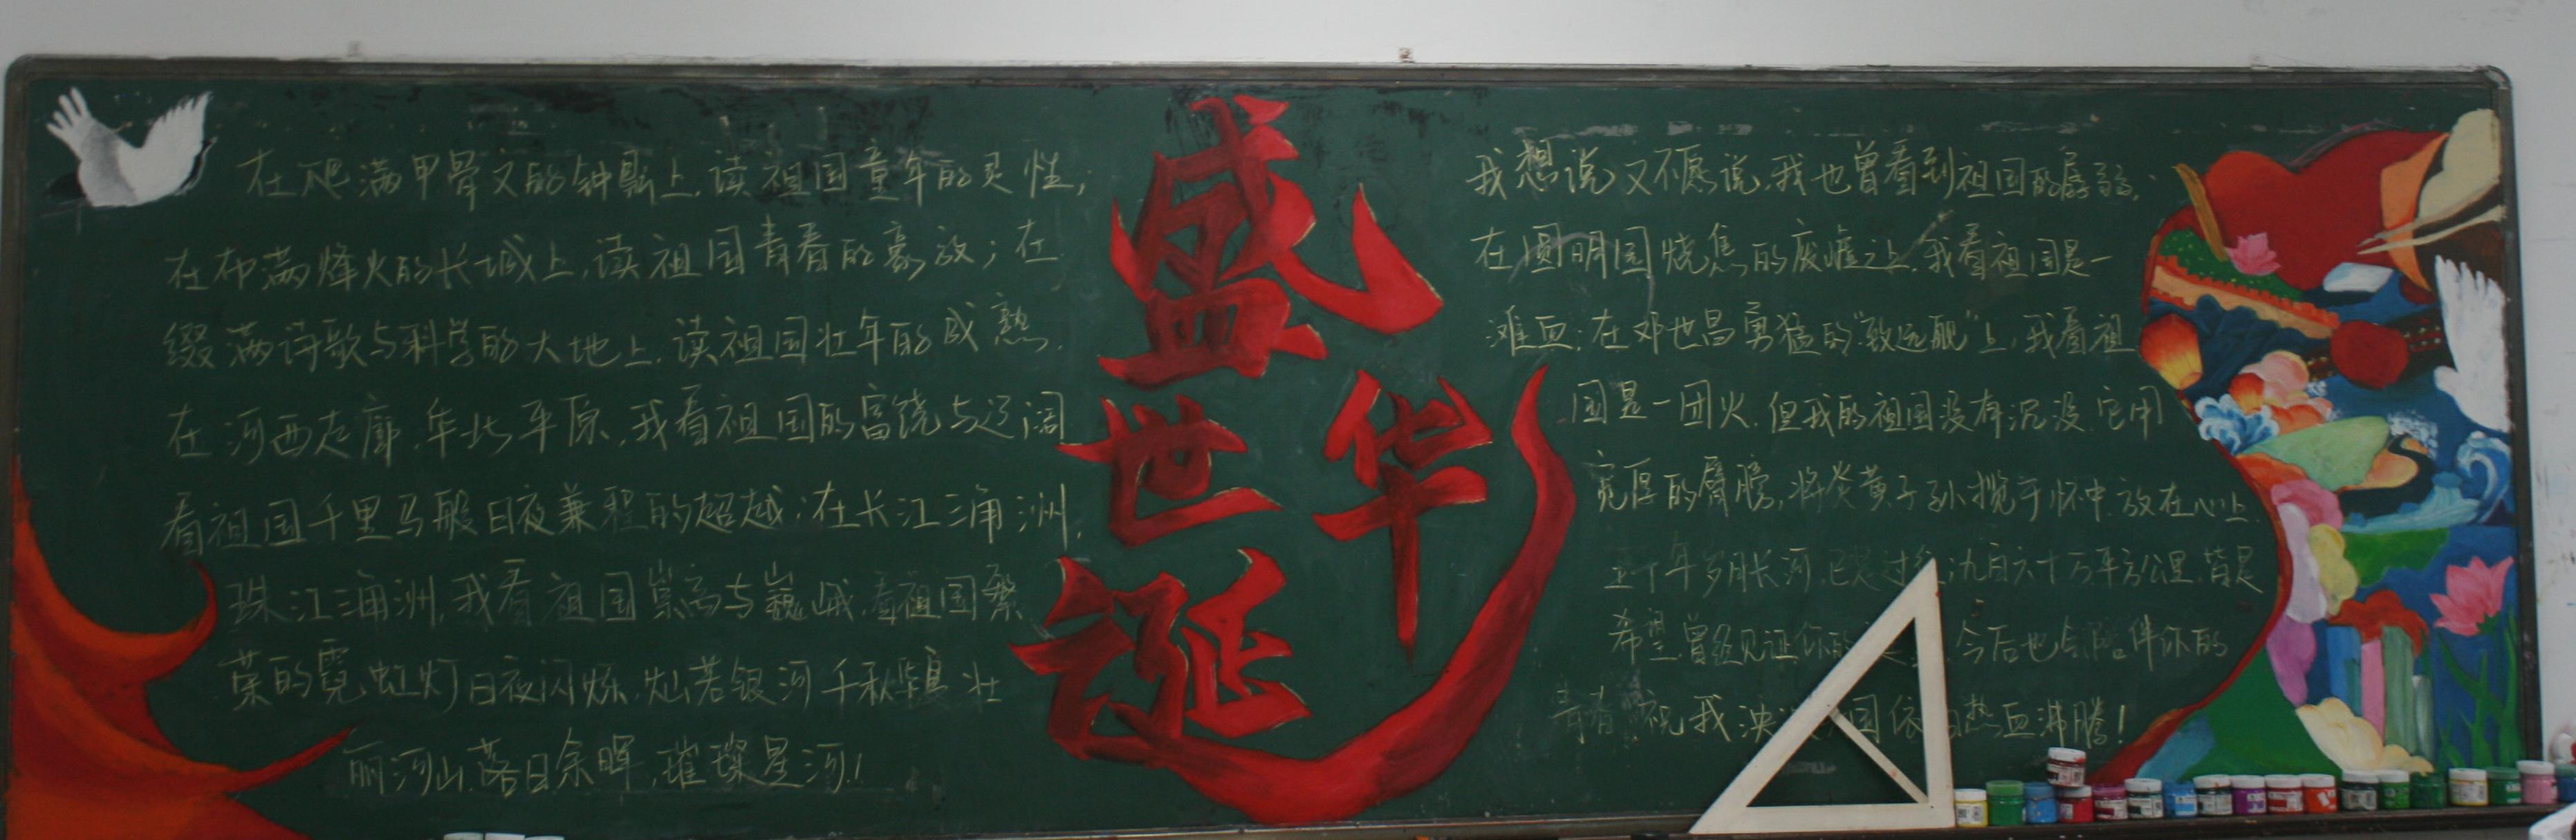 在爬满甲骨文的钟鼎上,读祖国童年的灵性;
在布满烽火的长城上,读祖国青春的豪放;在
缀满诗歌与科学的大地上,读祖国壮年的成熟.
在河西走廊,华北平原,我看祖国的富饶与辽阔
看祖国千里马般日夜兼程的超越;在长江三角洲,
珠江三角洲,我看祖国崇高与巍峨,看祖国繁
荣的霓虹灯日夜闪烁,灿若银河千秋 壮
丽河山,落日余晖,璀璨星河!
盛世华诞
我想说又不愿说,我也曾看到祖国的孱弱,
在圆明园烧焦的废墟上,我看祖国是一
滩血;在邓世昌勇猛的"致远舰"上,我看祖
国是一团火.但我的祖国没有沉没.它用
宽厚的臂膀,将炎黄子孙揽于怀中.放在心上.
五千年岁月长河,已是过往;九百六十万平方公里,皆是
希望.曾经见证你的 今后也会陪伴你的
青春 祝我泱 国依 热血沸腾!